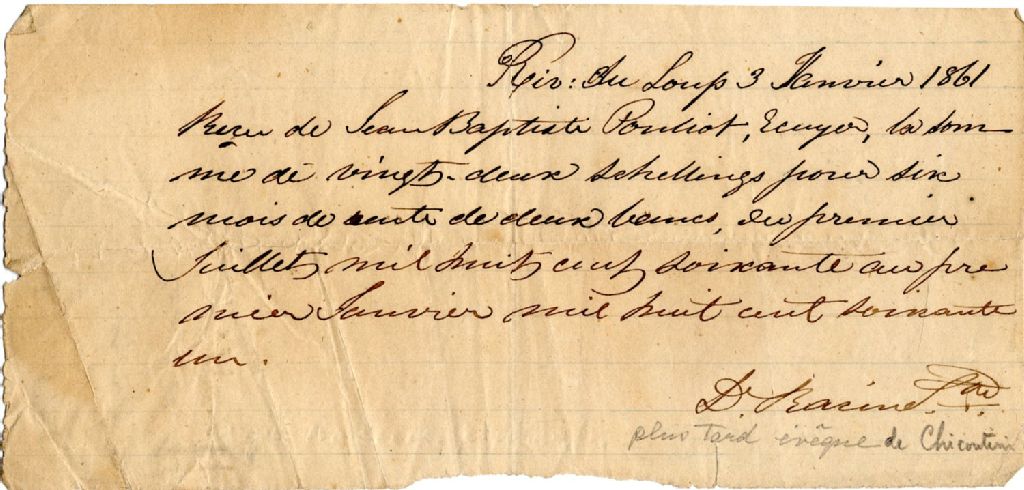 Riv: du Loup 3 Janvier 1861
Reçu de Jean Baptiste Pouliot, Ecuyer, la som
me de vingt-deux schellings pour six
mois de rente de deux bancs, du premier
Juillet mil huit cent soixante au pre
mier Janvier mil huit cent soixante
un.
D. Racine, Ptre
plus tard évêque de Chicoutimi